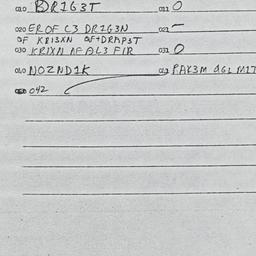 010 BR1G3T 011 O
020 EROF C3 DR1G3N 021 -
OF KR13XN OF+DRAP3T
030 KR1XN AFAL3 F1R 031 O
040 NOZND1K 041 PAK3M
042